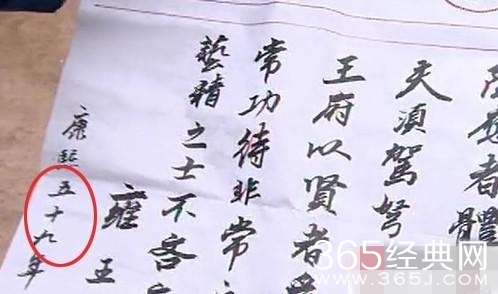 者體
天須駕弩
王府以賢者
常功待非常
藝精之士不吝
雍王
康熙五十九年
365经典网
WWW.365J.COM